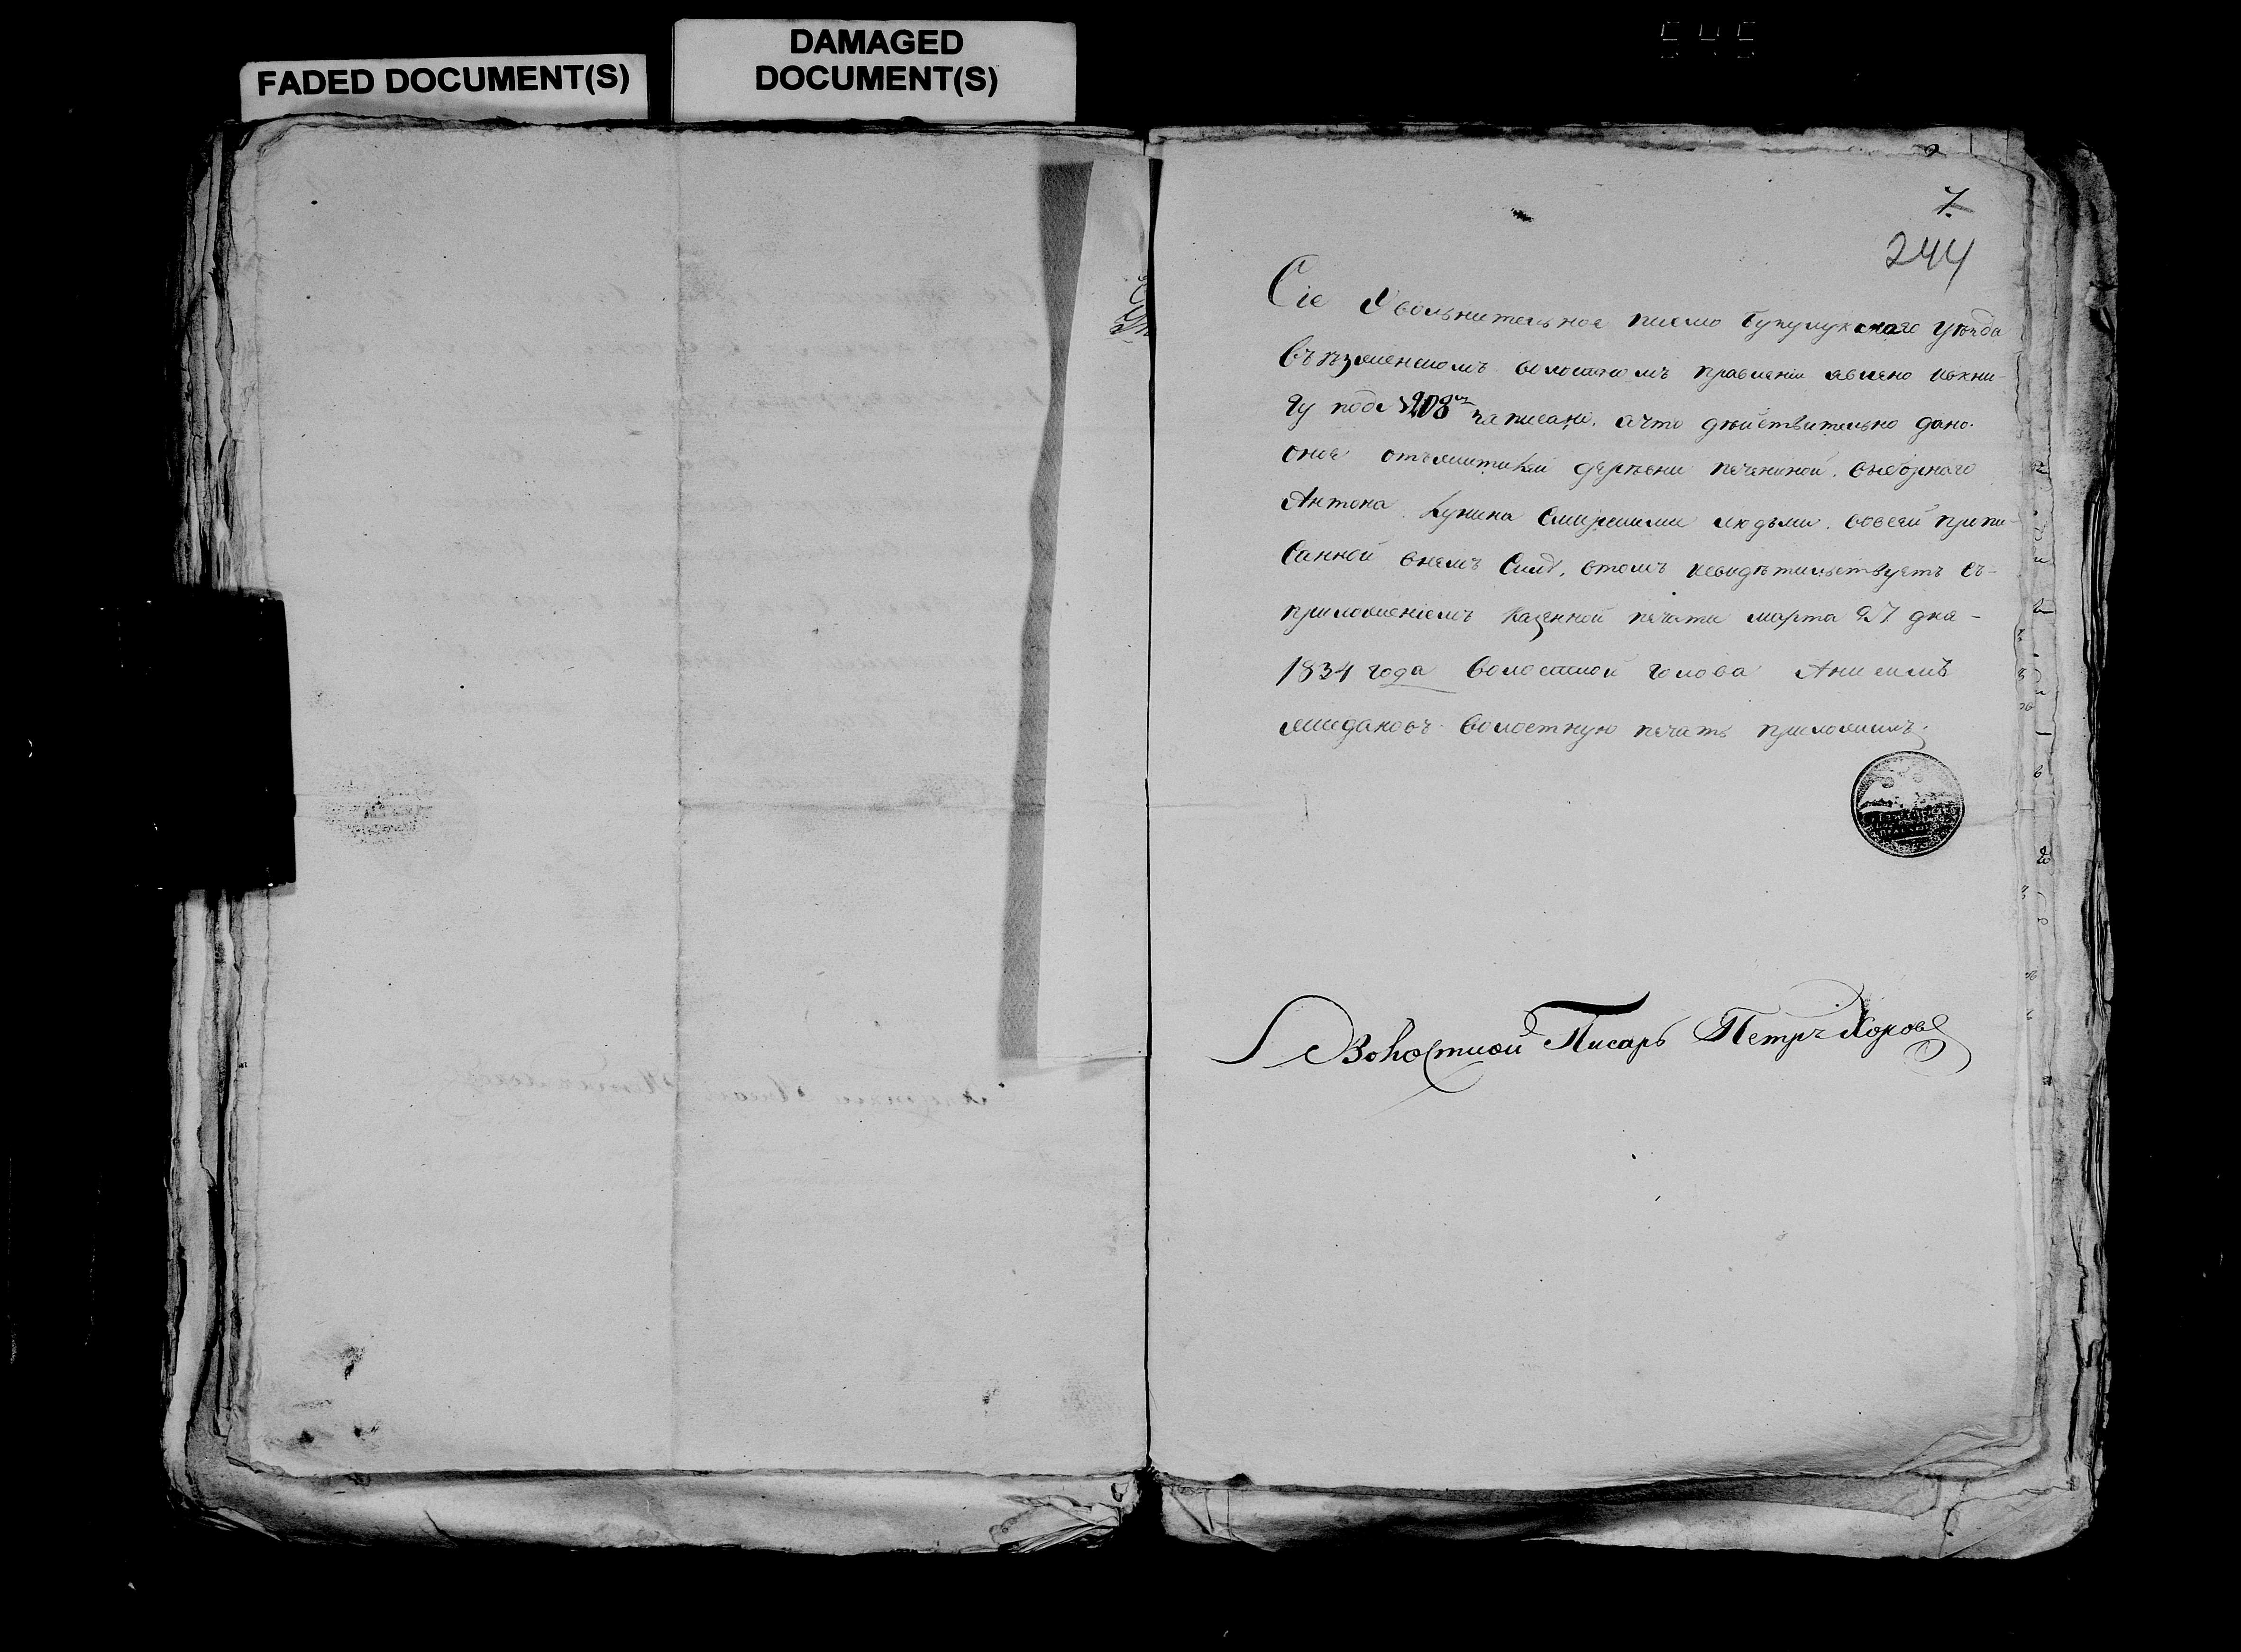 FADED DOCUMENT(S)
DAMAGED
DOCUMENT(S)
7
244
Сіе Увольнительное писмо Бугурусланскаго уѣзда
волостномъ правленіи явлено и въ кни-
гу подъ №208м записано. а что дѣйствительно дано
оное отъ жителей деревни выборнаго
Антона Кунина смирскими людьми. во всей пропи-
санной в немъ силѣ, в томъ и свидѣтельствуетъ съ
приложеніемъ казенной печати марта 27 дня
1834 года Волостной голова Анисимъ
волостную печать приложилъ.
Волостной Писарь Петръ